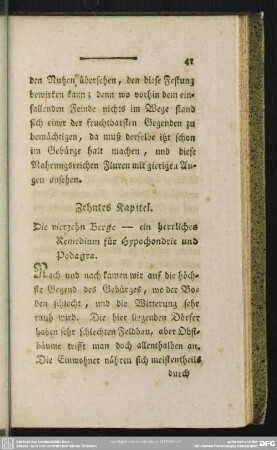 41
den Nutzen übersehen, den diese Festung
bewirken kann; denn wo vorhin dem ein-
fallenden Feinde nichts im Wege stand
sich einer der fruchtbarsten Gegenden zu
bemächtigen, da muß derselbe itzt schon
im Gebürge halt machen, und diese
Nahrungsreichen Fluren mit gierigen Au-
gen ansehen.
Zehntes Kapitel.
Die vierzehn Berge — ein herrliches
Remedium für Hypochondrie und
Podagra.
Nach und nach kamen wir auf die höch-
ste Gegend des Gebürges, wo der Bo-
den schlecht, und die Witterung sehr
rauh wird. Die hier liegenden Dörfer
haben sehr schlechten Feldbau, aber Obst-
bäume trifft man doch allenthalben an.
Die Einwohner nähren sich meistentheils
durch